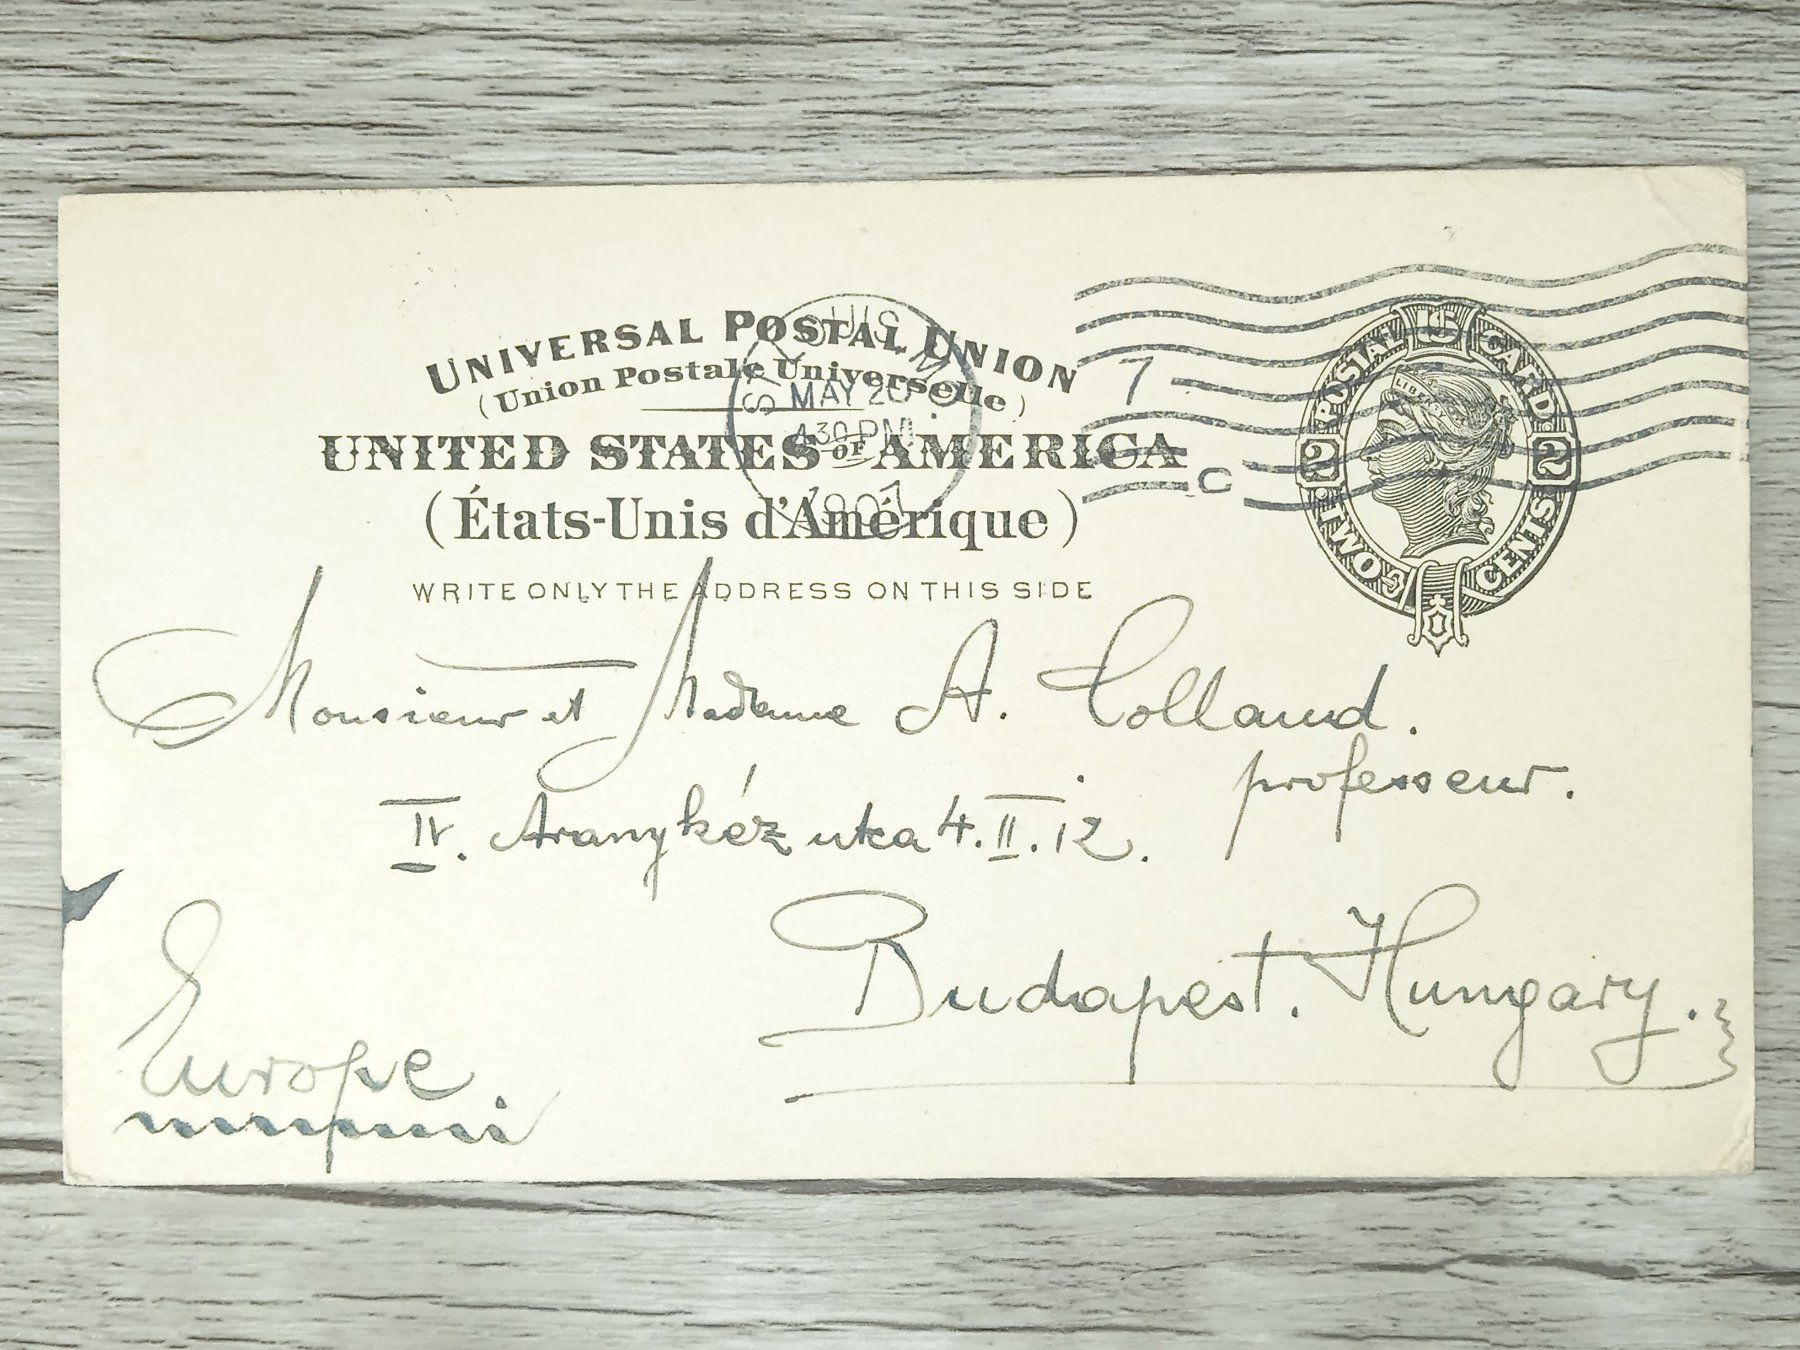 UNIVERSAL POSTAL UNION
(Union Postale Universelle)
UNITED STATES OF AMERICA
(États-Unis d'Amérique)
WRITE ONLY THE ADDRESS ON THIS SIDE
ST. LOUIS, MO.
MAY 20
4 30 PM
1907
7
C
U.S. POSTAL CARD
LIBERTY
2 2
TWO CENTS
Monsieur et Madame A. Tolland.
professeur.
IV. Aranykéz utca 4. II. 12.
Budapest. Hungary.
Europe